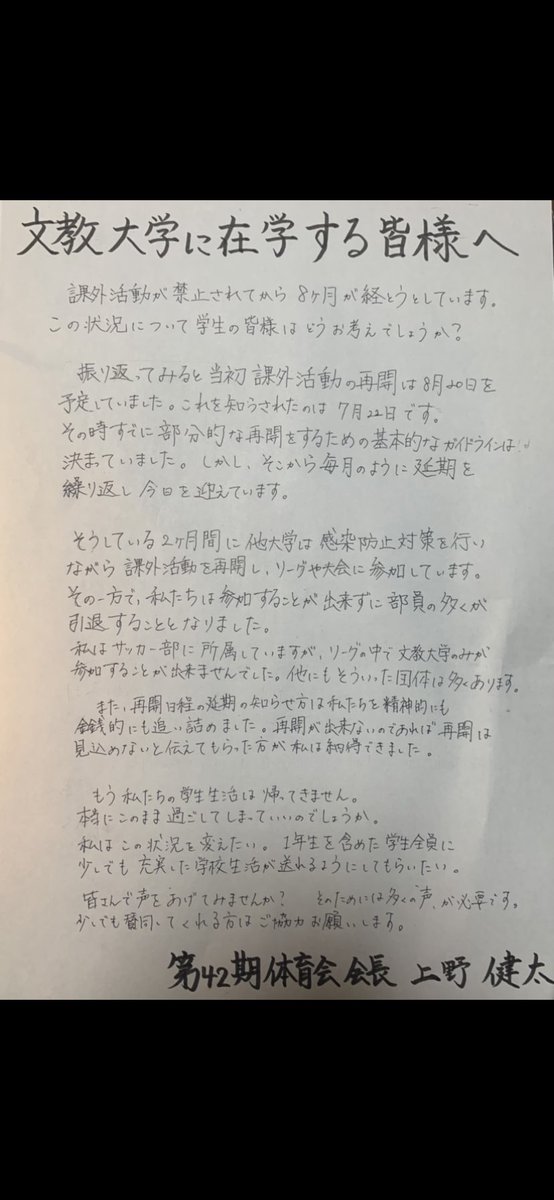 文教大学に在学する皆様へ
課外活動が禁止されてから 8ヶ月が経とうとしています。
この状況について学生の皆様はどうお考えでしょうか？
振り返ってみると当初 課外活動の再開は8月20日を
予定していました。これを知らされたのは 7月22日です。
その時すでに部分的な再開をするための基本的なガイドラインは
決まっていました。しかし、そこから毎月のように延期を
繰り返し 今日を迎えています。
そうしている2ヶ月間に他大学は感染防止対策を行い
ながら 課外活動を再開し、リーグや大会に参加しています。
その一方で、私たちは参加することが出来ずに部員の多くが
引退することとなりました。
私はサッカー部に所属していますが、リーグの中で文教大学のみが
参加することが出来ませんでした。他にもそういった団体は多くあります。
また、再開日程の延期の知らせ方は私たちを精神的にも
金銭的にも追い詰めました。再開が出来ないのであれば再開は
見込めないと伝えてもらった方が私は納得できました。
もう私たちの学生生活は帰ってきません。
本当にこのまま過ごしてしまっていいのでしょうか。
私はこの状況を変えたい。1年生を含めた学生全員に
少しでも充実した学校生活が送れるようにしてもらいたい。
皆さんで声をあげてみませんか？ そのためには多くの声が必要です。
少しでも賛同してくれる方はご協力お願いします。
第42期体育会会長 上野 健太